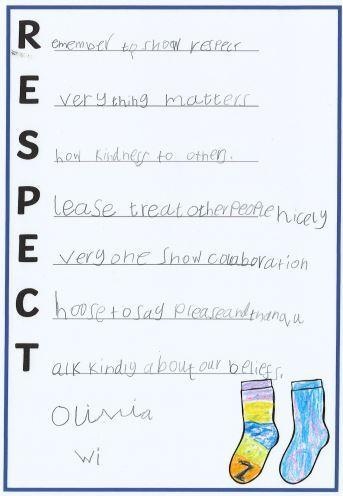 Remember to show respect
Everything matters
Show kindness to others.
Please treat other people nicely
Everyone show colaboration
Choose to say pleaseandthanqu
Talk kindly about our beliefs.
Olivia
Wi